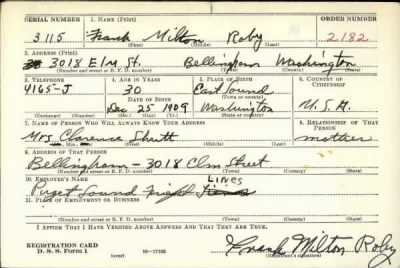 SERIAL NUMBER 1. NAME (Print) ORDER NUMBER
3115 Frank Milton Roby 2182
(First) (Middle) (Last)
2. ADDRESS (Print)
3018 Elm St. Bellingham Washington
(Number and street or R. F. D. number) (Town) (County) (State)
3. TELEPHONE 4. AGE IN YEARS 5. PLACE OF BIRTH 6. COUNTRY OF CITIZENSHIP
4165-J 30 East Sound
DATE OF BIRTH (Town or county)
Dec 25 1909 Washington U.S.A.
(Exchange) (Number) (Mo.) (Day) (Yr.) (State or country)
7. NAME OF PERSON WHO WILL ALWAYS KNOW YOUR ADDRESS 8. RELATIONSHIP OF THAT PERSON
Mrs Clarence Shutt mother
(Mr., Mrs., Miss) (First) (Middle) (Last)
9. ADDRESS OF THAT PERSON
Bellingham - 3018 Elm Street
(Number and street or R. F. D. number) (Town) (County) (State)
10. EMPLOYER'S NAME LINES
Puget Sound Freight
11. PLACE OF EMPLOYMENT OR BUSINESS
(Number and street or R. F. D. number) (Town) (County) (State)
I AFFIRM THAT I HAVE VERIFIED ABOVE ANSWERS AND THAT THEY ARE TRUE.
REGISTRATION CARD
D. S. S. Form 1 (over) 16-17105 Frank Milton Roby
(Registrant's signature)